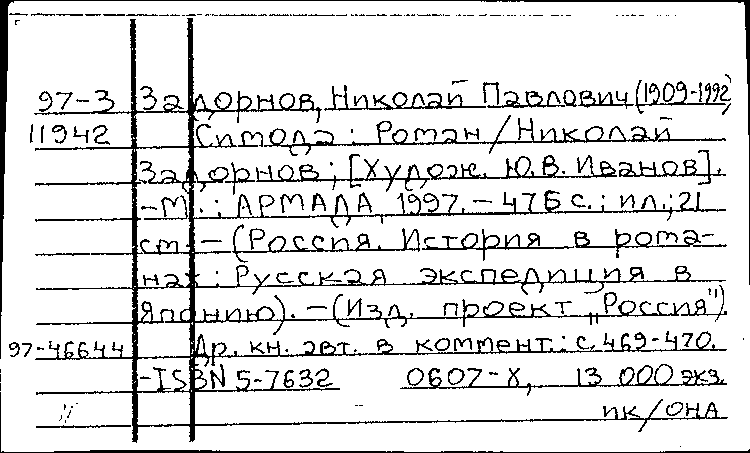 97-3 Задорнов, Николай Павлович (1909-1992)
11942 Симода : Роман / Николай
Задорнов ; [Худож. Ю.В. Иванов].
-М. : АРМАДА, 1997. - 476 с. ; ил.; 21
см. - (Россия. История в рома-
нах : Русская экспедиция в
Японию). - (Изд. проект „Россия").
97-46644 Др. кн. авт. в коммент.: с. 469-470.
-ISBN 5-7632 0607-X, 13 000 экз.
ПК/ОНА